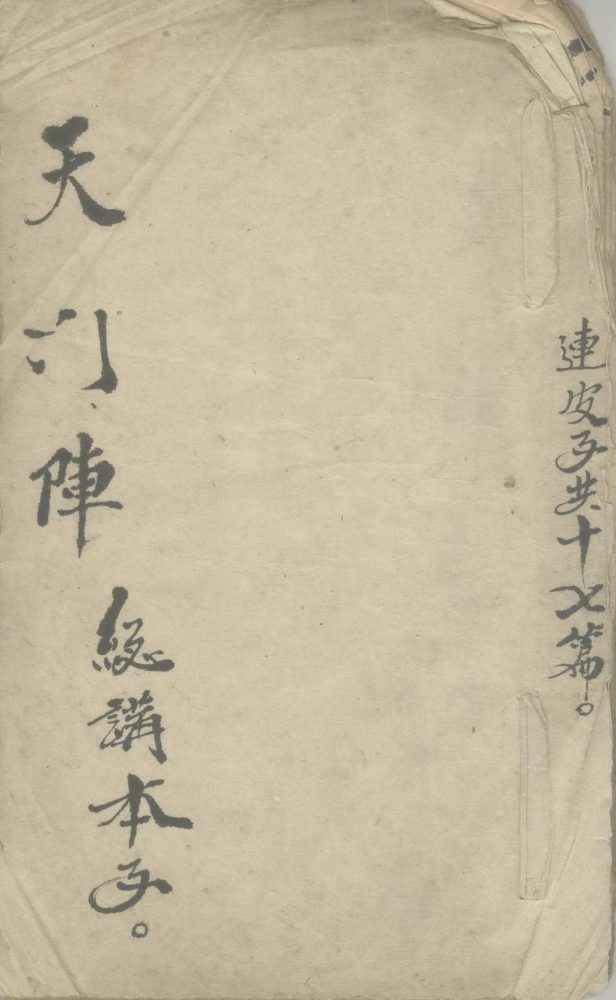 連皮子共十七篇。
天门陣
總講本子。